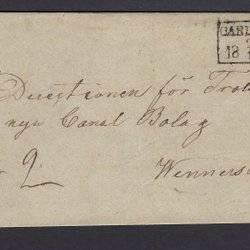 CARL
18
Directionen för Trol
nya Canal Bolag
2
Wenners